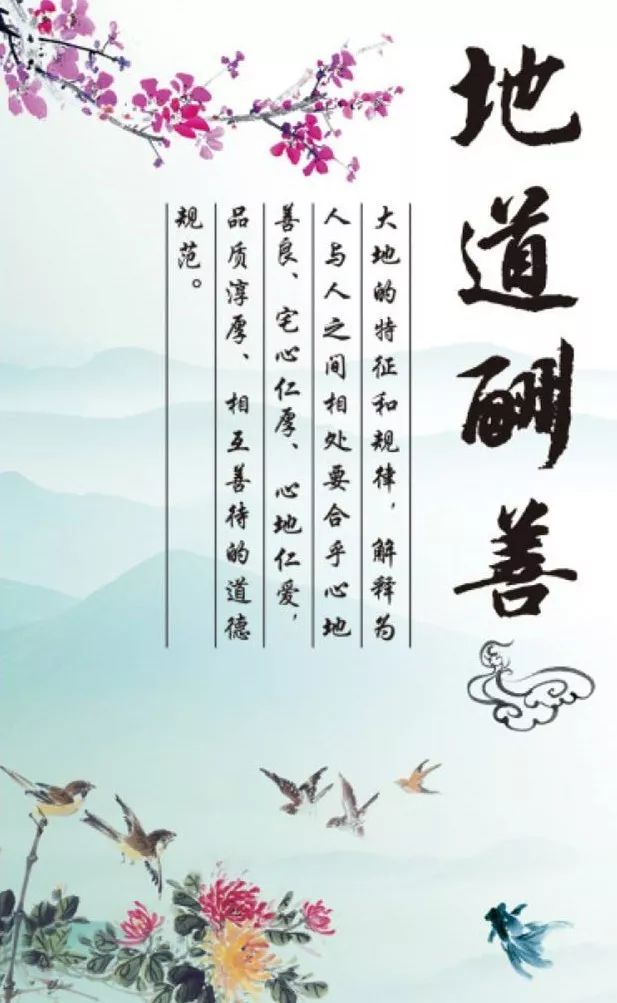 地道酬善
大地的特征和规律，解释为
人与人之间相处要合乎心地
善良、宅心仁厚、心地仁爱，
品质淳厚、相互善待的道德
规范。